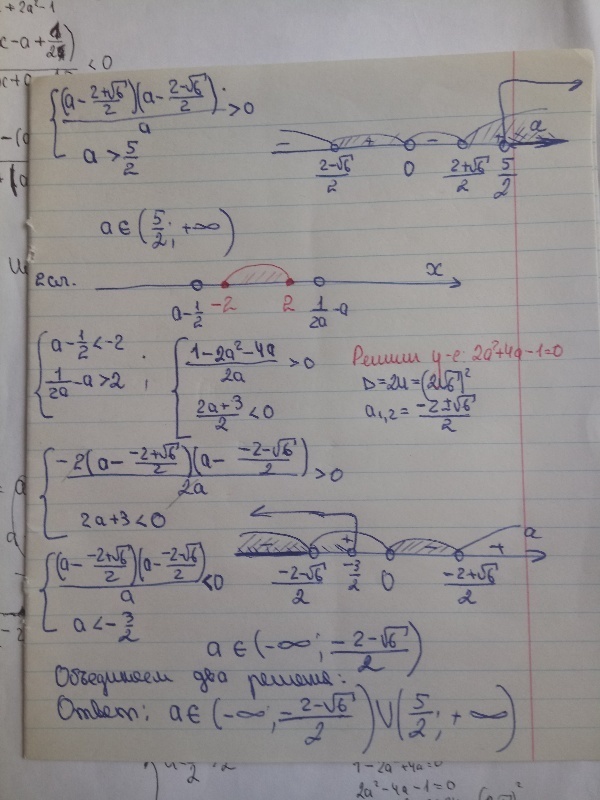 + 2a²-1
<0
{ (a - (2+√6)/2)(a - (2-√6)/2) / a > 0
a > 5/2
− + − + a
(2-√6)/2 0 (2+√6)/2 5/2
a ∈ (5/2; +∞)
2сл. x
a-1/2 -2 2 1/2a -a
{ a - 1/2 < -2
1/2a - a > 2 ;
{ (1-2a²-4a)/2a > 0
(2a+3)/2 < 0
Решим у-е: 2a²+4a-1=0
D=24=(2√6)²
a₁,₂ = (-2±√6)/2
{ -2(a - (-2+√6)/2)(a - (-2-√6)/2) / 2a > 0
2a+3<0
{ (a - (-2+√6)/2)(a - (-2-√6)/2) / a < 0
a < -3/2
− + − + a
(-2-√6)/2 -3/2 0 (-2+√6)/2
a ∈ (-∞; (-2-√6)/2)
Объединяем два решения:
Ответ: a ∈ (-∞; (-2-√6)/2) ∪ (5/2; +∞)
1-2a²+4a=0
2a²-4a-1=0